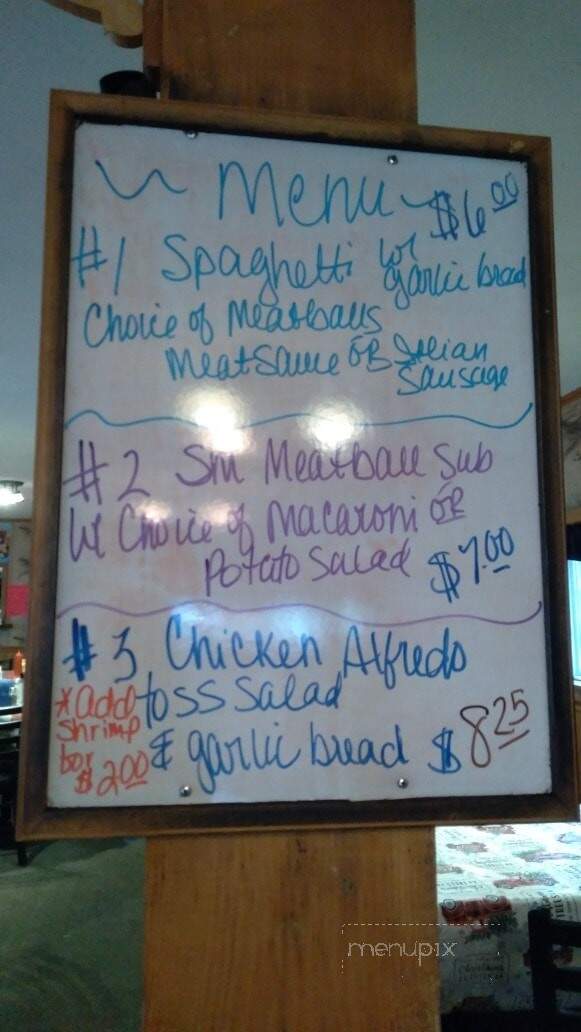 Menu $6.00
#1 Spaghetti w/ garlic bread
Choice of Meatballs
Meatsauce OR Italian Sausage
#2 Sm Meatball Sub
w/ Choice of Macaroni OR
Potato Salad $7.00
#3 Chicken Alfredo
toss Salad
& garlic bread $8.25
*add
Shrimp
for
$2.00
menupix